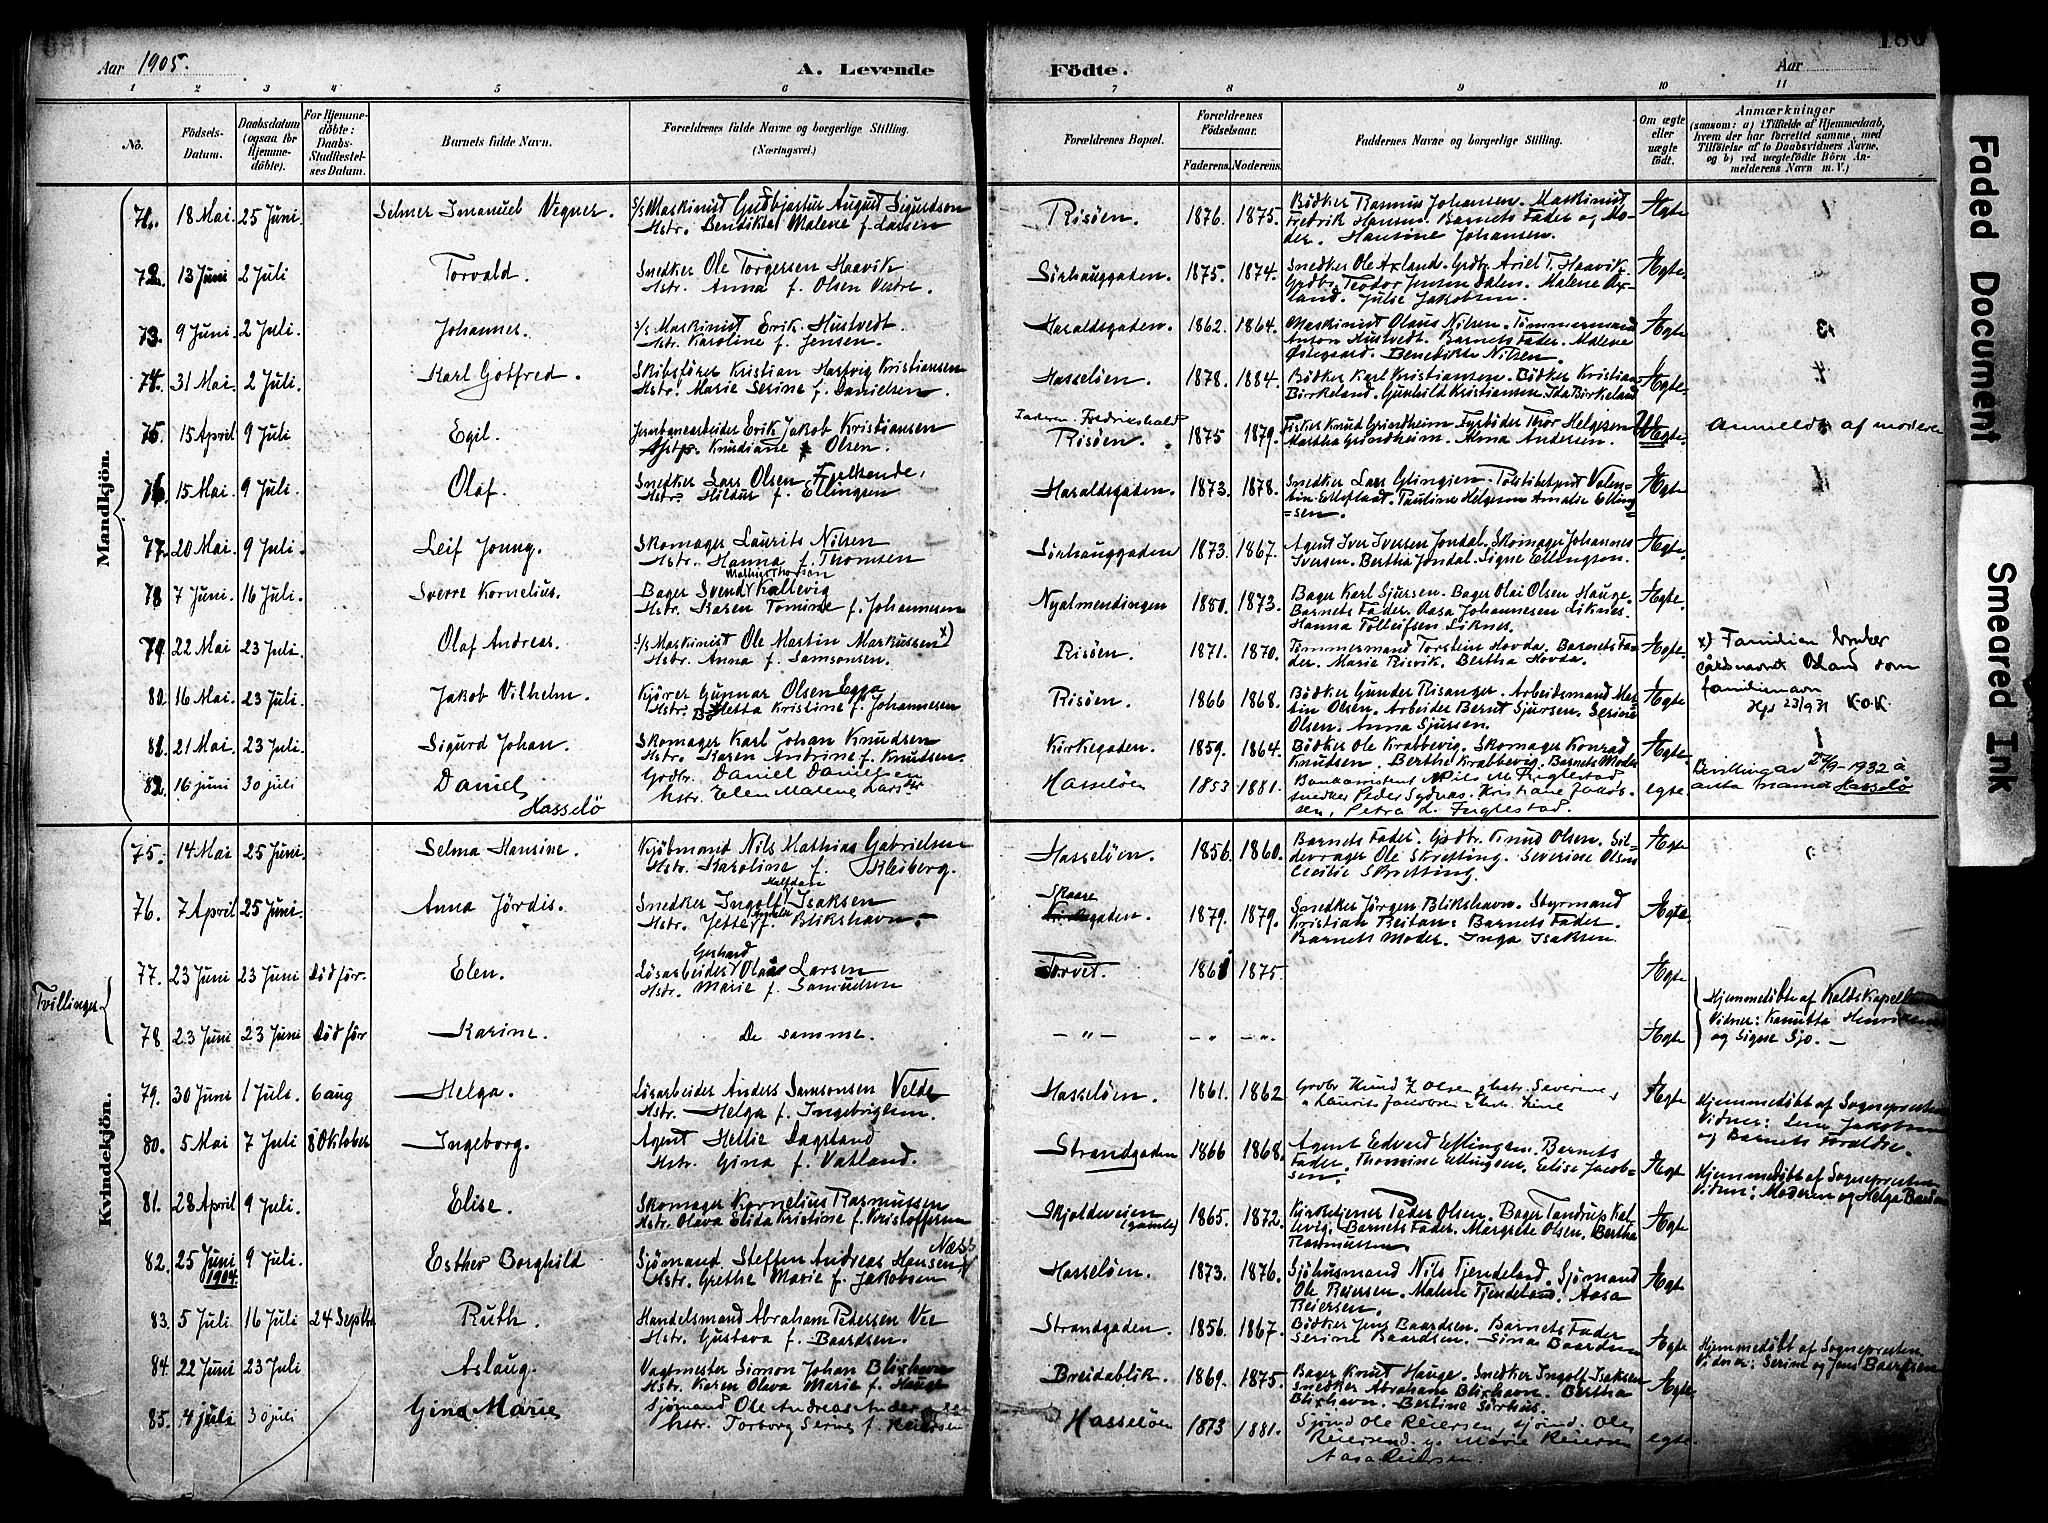 Aar 1905.
A. Levende
Födte.
Aar
180
1 2 3 4 5 6 7 8 9 10 11
No.
Födsels-Datum.
Daabsdatum (ogsaa for Hjemmedöbte).
For Hjemmedöbte: Daabs-Stadfæstelses Datum.
Barnets fulde Navn.
Forældrenes fulde Navne og borgerlige Stilling. (Næringsvei.)
Forældrenes Bopæl.
Forældrenes Födselsaar.
Faderens. Moderens.
Faddernes Navne og borgerlige Stilling.
Om ægte eller uægte födt.
Anmærkninger
(saasom: a) i Tilfælde af Hjemmedaab, hvem der har forrettet samme, med Tilföielse af to Daabsvidners Navne, og b) ved uægtefödte Börn Anmelderens Navn m. V.)
Mandkjön.
71. 18 Mai. 25 Juni. Selmer Imanuel Vegner. S/s Maskinist Gudbjartur August Sigurdson
Hstr. Bendikte Malene f. Larsen
Risöen. 1876. 1875. Bödker Rasmus Johansen. Maskinist
Fredrik Hansen. Barnets Fader og Mo-
der. Hansine Johansen. Ægte.
72. 13 Juni 2 Juli Torvald. Snedker Ole Torgersen Haavik
Hstr. Anna f. Olsen Vestre.
Sörhauggaden. 1875. 1874. Snedker Ole Axland. Grdbr. Ariel T. Haavik.
Grdbr. Teodor Jensen Dalen. Malene Ax-
land. Julie Jakobsen. Ægte.
73. 9 Juni. 2 Juli. Johannes. S/s Maskinist Erik Hustvedt.
Hstr. Karoline f. Jensen.
Haraldsgaden. 1862. 1864. Maskinist Olaus Nilsen. Tömmermand
Anton Hustvedt. Barnets Fader. Malene
Østegaard. Benedikte Nilsen. Ægte
74. 31 Mai. 2 Juli. Karl Gotfred. Skibsförer Kristian Hartvig Kristiansen
Hstr. Marie Serine f. Danielsen.
Hasselöen. 1878. 1884. Bödker Karl Kristiansen. Bödker Kristian
Birkeland. Gunhild Kristiansen. Ida Birkeland Ægte.
75. 15 April 9 Juli Egil. Jernbanearbeider Erik Jakob Kristiansen
Knudiane Olsen.
Faderen Fredrikshald
Risöen. 1875 1879. Fisker Knud Grindheim. Fyrböder Thor Helgesen
Martha Grindheim. Anna Andersen. Uægte. Anmeldt af moderen
76. 15 Mai. 9 Juli Olaf. Snedker Lars Olsen Fjelkende.
Hstr. Hildur f. Ellingsen
Haraldsgaden. 1873. 1878. Snedker Lars Ellingsen. Politibetjent Valen-
tin Ellefstad. Pauline Helgesen Amalie Elling
=sen. Ægte.
77. 20 Mai. 9 Juli. Leif Joung. Skomager Laurits Nilsen
Hstr. Hanna f. Thomsen
Sörhauggaden 1873. 1867. Agent Iver Iversen Jondal. Skomager Johannes
Iversen. Bertha Jondal. Signe Ellingsen. Ægte.
78. 7 Juni. 16 Juli. Sverre Kornelius. Mathias Thorsen
Bager Svend Kallevig
Hstr. Karen Tomine f. Johannesen
Nyalmendingen 1850. 1873. Bager Karl Sjursen. Bager Olai Olsen Hauge.
Barnets Fader. Aasa Johannesen Liknes.
Hanna Tolleifsen Liknes. Ægte.
79. 22 Mai 23 Juli. Olaf Andreas. S/s Maskinist Ole Martin Markussen x)
Hstr. Anna f. Samsonsen.
Risöen. 1871. 1870. Tömmermand Torstein Hovda. Barnets Fa-
der. Marie Risvik. Bertha Hovda. Ægte. x) Familien bruker
gårdsnavnet Øland som
familienavn
23/9 31 K.O.K.
80. 16 Mai. 23 Juli. Jakob Vilhelm. Kjörer Gunnar Olsen Egge
Hstr. Bertetta Kristine f. Johannesen
Risöen. 1866 1868. Bödker Gunder Risanger. Arbeidsmand Mar-
tin Olsen. Arbeider Bernt Sjursen. Serine
Olsen. Anna Sjursen. Ægte.
81. 21 Mai. 23 Juli. Sigurd Johan. Skomager Karl Johan Knudsen
Hstr. Karen Andrine f. Knudsen.
Kirkegaden. 1859. 1864. Bödker Ole Krabbevig. Skomager Konrad
Knudsen. Berthe Krabbevig. Barnets Moder Ægte.
82. 16 juni 30 juli Daniel Hasselö Grdbr. Daniel Danielsen
hstr. Elen Malene Larsdtr
Hasselöen 1853 1881. Bankassistent Nils M. Fuglestad
snedker Peder Sydnes. Kristiane Jakob-
sen, Petra d. Fuglestad. egte Bevilling av 27/9-1932 å
anta navnet Hasselö
Kvindekjön.
75. 14 Mai 25 Juni. Selma Hansine. Kjöbmand Nils Mathias Gabrielsen
Hstr. Karoline f. Bleiberg.
Hasselöen. 1856. 1860. Barnets Fader. Grdbr. Knud Olsen. Sil-
devrager Ole Skretting. Severine Olsen
Cecilie Skretting. Ægte
76. 7 April 25 Juni. Anna Jördis. Halfdan
Snedker Ingolf Isaksen
Hstr. Jette f. Blikshavn.
Skaare
gaden. 1879. 1879. Snedker Jörgen Blikshavn. Styrmand
Kristian Reitan. Barnets Fader.
Barnets Moder. Inga Isaksen. Ægte.
Tvillinger
77. 23 Juni 23 Juni Död för. Elen. Gerhard
Lösarbeider Olaus Larsen
Hstr. Marie f. Samuelsen
Torvet. 1861 1875. Ægte
78. 23 Juni 23 Juni Död för Karine. De samme. — „ — — „ — „ . Ægte Hjemmedöbte af Kaldskapellanen
Vidner: Kanutta Henriksen
og Signe Sjo. —
79. 30 Juni 1 Juli. 6 aug Helga. Lösarbeider Anders Samsonsen Velde
Hstr. Helga f. Ingebrigtsen.
Hasselöen. 1861. 1862 Grdbr Knud Z Olsen & hstr. Severine,
„ Laurits Jacobsen & hstr. Line Ægte Hjemmedöbt af Sognepresten
Vidner: Line Jakobsen
og Barnets Foraldre.
80. 5 Mai 7 Juli 8 Oktober Ingeborg. Agent Hellie Dagsland
Hstr. Gina f. Vatland.
Strandgaden 1866 1868. Agent Edvard Ellingsen. Barnets
Fader. Thomine Ellingsen. Elise Jacob-
sen. Ægte Hjemmedöbt af Sognepresten
Vidner: Moderen og Helga
81. 28 April 9 Juli. Elise. Skomager Kornelius Rasmussen
Hstr. Olava Elida Kristine f. Kristoffersen
Skjoldeveien
(gamle) 1865. 1872. Kirketjener Peder Olsen. Bager Tandrup Kal-
levig. Barnets Fader. Margrete Olsen. Bertha
Rasmussen. Ægte
82. 25 Juni 1904. 9 Juli. Esther Borghild Sjömand Steffen Andreas Hansen Næss
Hstr. Grethe Marie f. Jakobsen
Hasselöen. 1873. 1876. Sjöhusmand Nils Tjendeland. Sjömand
Ole Reiersen. Malene Tjendeland. Aasa
Reiersen. Ægte
83. 5 Juli 16 Juli 24 Septbr Ruth. Handelsmand Abraham Pedersen Vee
Hstr. Gustava f. Baardsen.
Strandgaden. 1856. 1867. Bödker Jens Baardsen. Barnets Fader
Serine Baardsen. Sina Baardsen Ægte Hjemmedöbt af Sognepresten
Vidner: Serine og Jens Baardsen
84. 22 Juni 23 Juli Aslaug. Vagtmester Simon Johan Blixhavn
Hstr. Karen Olava Marie f. Hauge
Breidablik. 1869. 1875. Bager Knut Hauge. Snedker Ingolf Isaksen
Snedker Abraham Blixhavn. Bertha
Blixhavn. Bertine Sörhus. Ægte
85. 4 juli 30 juli Gina Marie Sjömand Ole Andreas Andersen
hstr. Torborg Serine f. Reiersen
Hasselöen 1873 1881. Sjömd Ole Reiersen, sjömd. Ole
Reiersen d. y. Marie Reiersen
Aasa Reiersen. egte
Faded Document
Smeared Ink